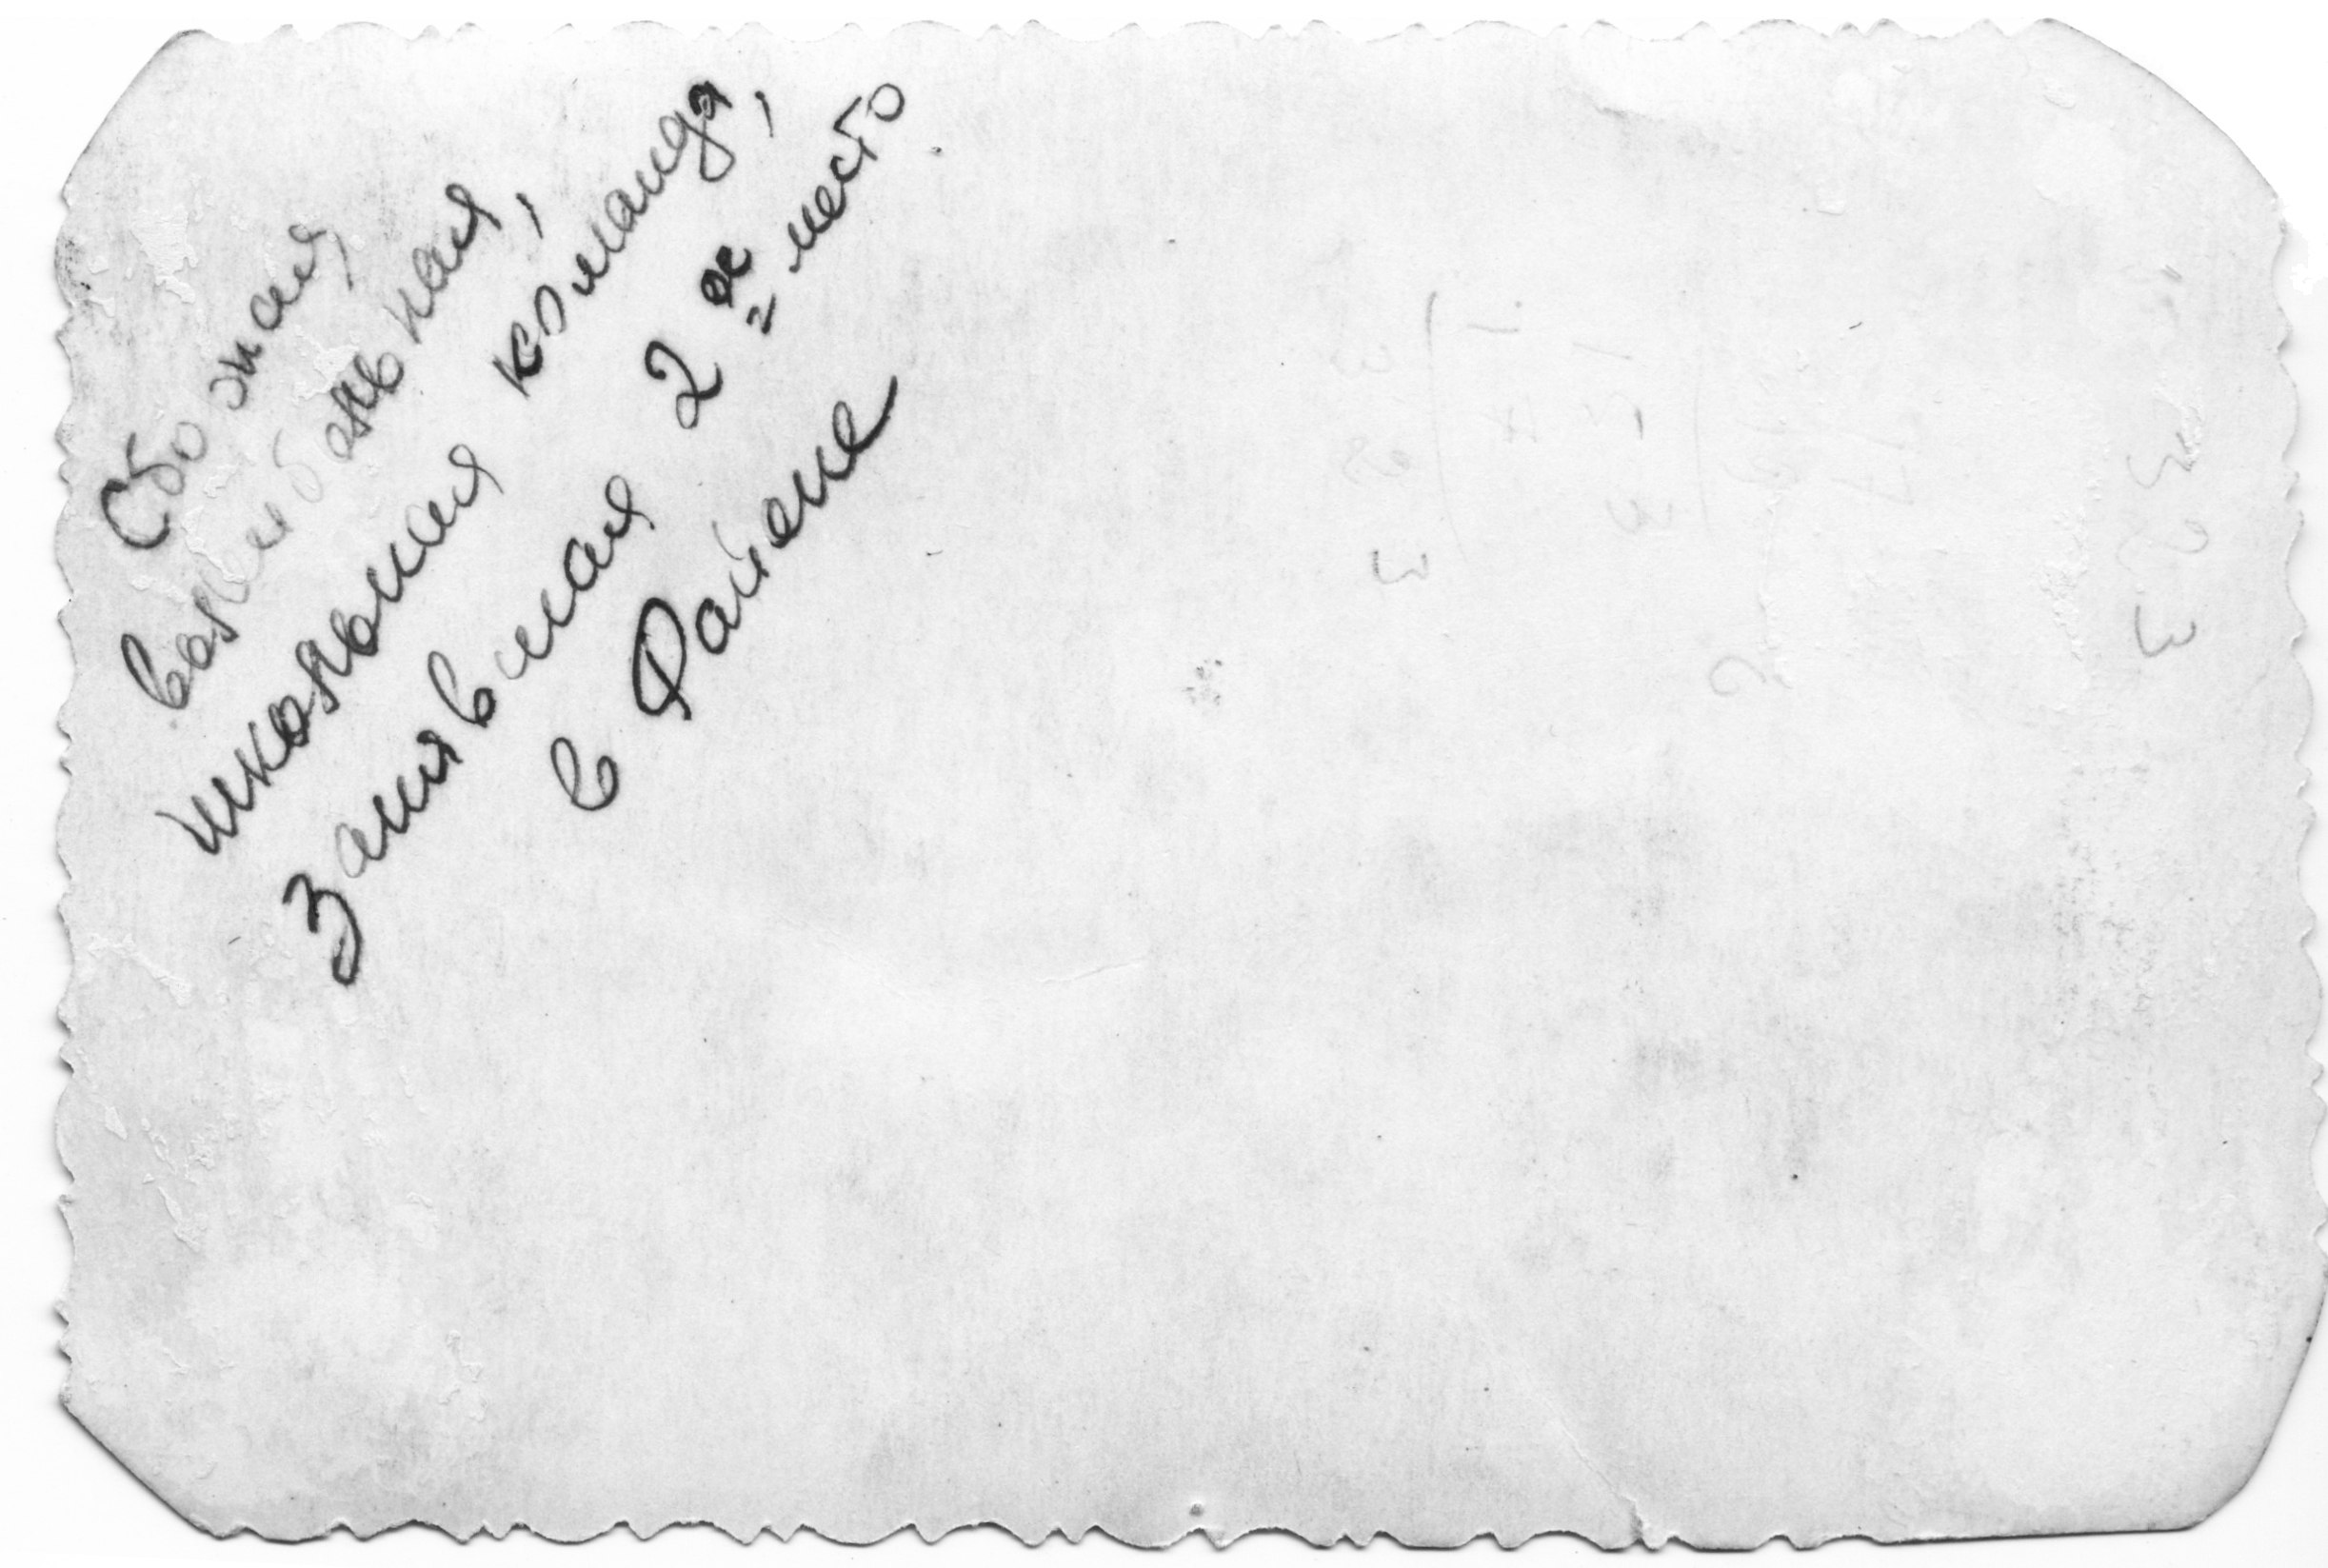 Сборная,
волейбольная,
школьная команда,
Занявшая 2ое место
в Районе